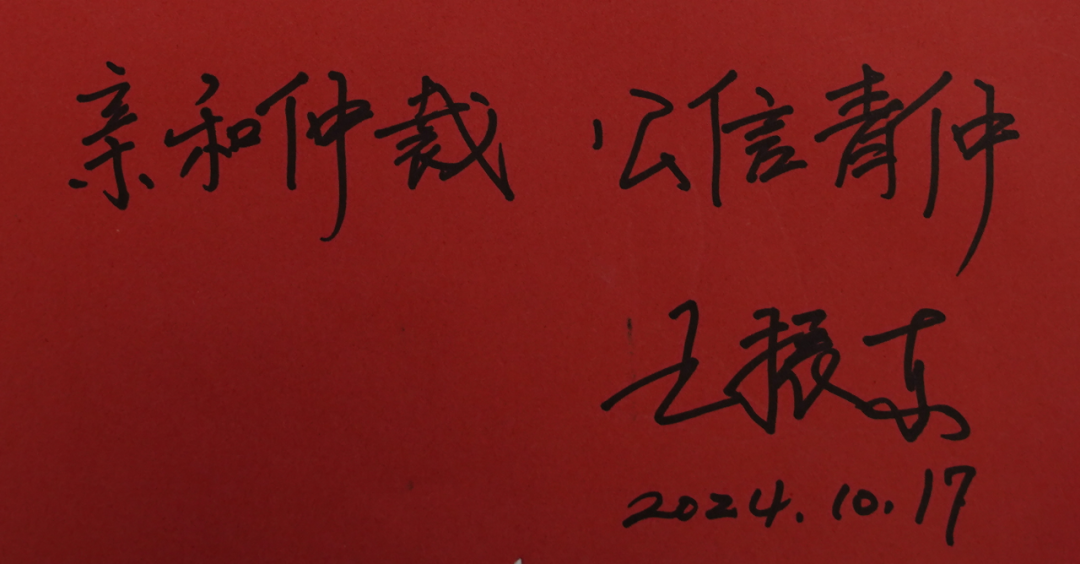 亲和仲裁 公信青仲
王振东
2024.10.17